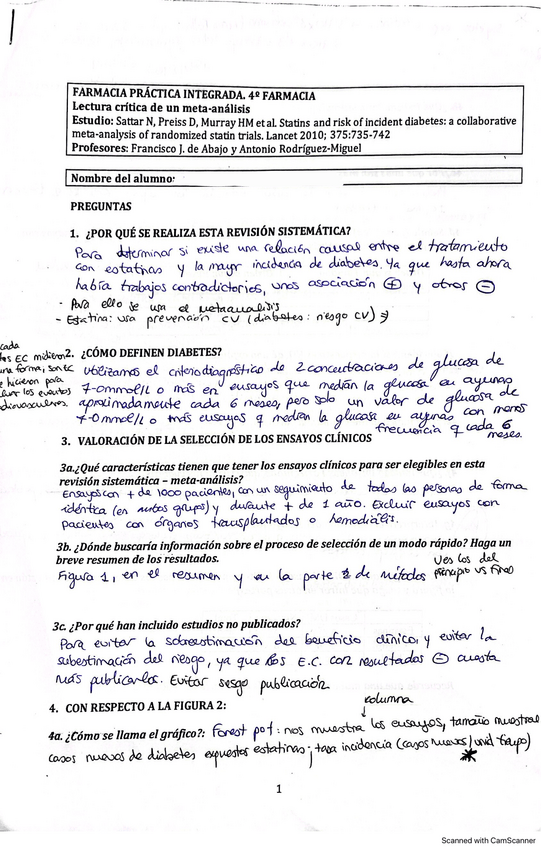 FARMACIA PRÁCTICA INTEGRADA. 4º FARMACIA
Lectura crítica de un meta-análisis
Estudio: Sattar N, Preiss D, Murray HM et al. Statins and risk of incident diabetes: a collaborative
meta-analysis of randomized statin trials. Lancet 2010; 375:735-742
Profesores: Francisco J. de Abajo y Antonio Rodríguez-Miguel
Nombre del alumno:
PREGUNTAS
1. ¿POR QUÉ SE REALIZA ESTA REVISIÓN SISTEMÁTICA?
Para determinar si existe una relación causal entre el tratamiento
con estatinas y la mayor incidencia de diabetes. Ya que hasta ahora
había trabajos contradictorios, unos asociación + y otros -
- Para ello se usa el metaanalisis
- Estatina: usa prevención CV (diabetes: riesgo CV)
cada
EC midieron
una forma, son EC
se hicieron para
los eventos
2. ¿CÓMO DEFINEN DIABETES?
Utilizamos el criterio diagnóstico de 2 concentraciones de glucosa de
7-0mmol/L o más en ensayos que medían la glucosa en ayunas
aproximadamente cada 6 meses, pero solo un valor de glucosa de
7-0mmol/L o más ensayos q medían la glucosa en ayunas con menos
frecuencia q cada 6
meses.
3. VALORACIÓN DE LA SELECCIÓN DE LOS ENSAYOS CLÍNICOS
3a.¿Qué características tienen que tener los ensayos clínicos para ser elegibles en esta
revisión sistemática – meta-análisis?
Ensayos con + de 1000 pacientes, con un seguimiento de todas las personas de forma
idéntica (en ambos grupos) y durante + de 1 año. Excluir ensayos con
pacientes con órganos transplantados o hemodiálisis.
3b. ¿Dónde buscaría información sobre el proceso de selección de un modo rápido? Haga un
breve resumen de los resultados.
Ves los del
principio vs final
Figura 1, en el resumen y en la parte de métodos
3c. ¿Por qué han incluido estudios no publicados?
Para evitar la sobreestimación del beneficio clínico y evitar la
subestimación del riesgo, ya que los E.C. con resultados - cuesta
más publicarlos. Evitar sesgo publicación
4. CON RESPECTO A LA FIGURA 2:
columna
4a. ¿Cómo se llama el gráfico?: Forest pot: nos muestra los ensayos, tamaño muestral
casos nuevos de diabetes expuestos estatinas; tasa incidencia (casos nuevos/unid tiempo)
1
Scanned with CamScanner